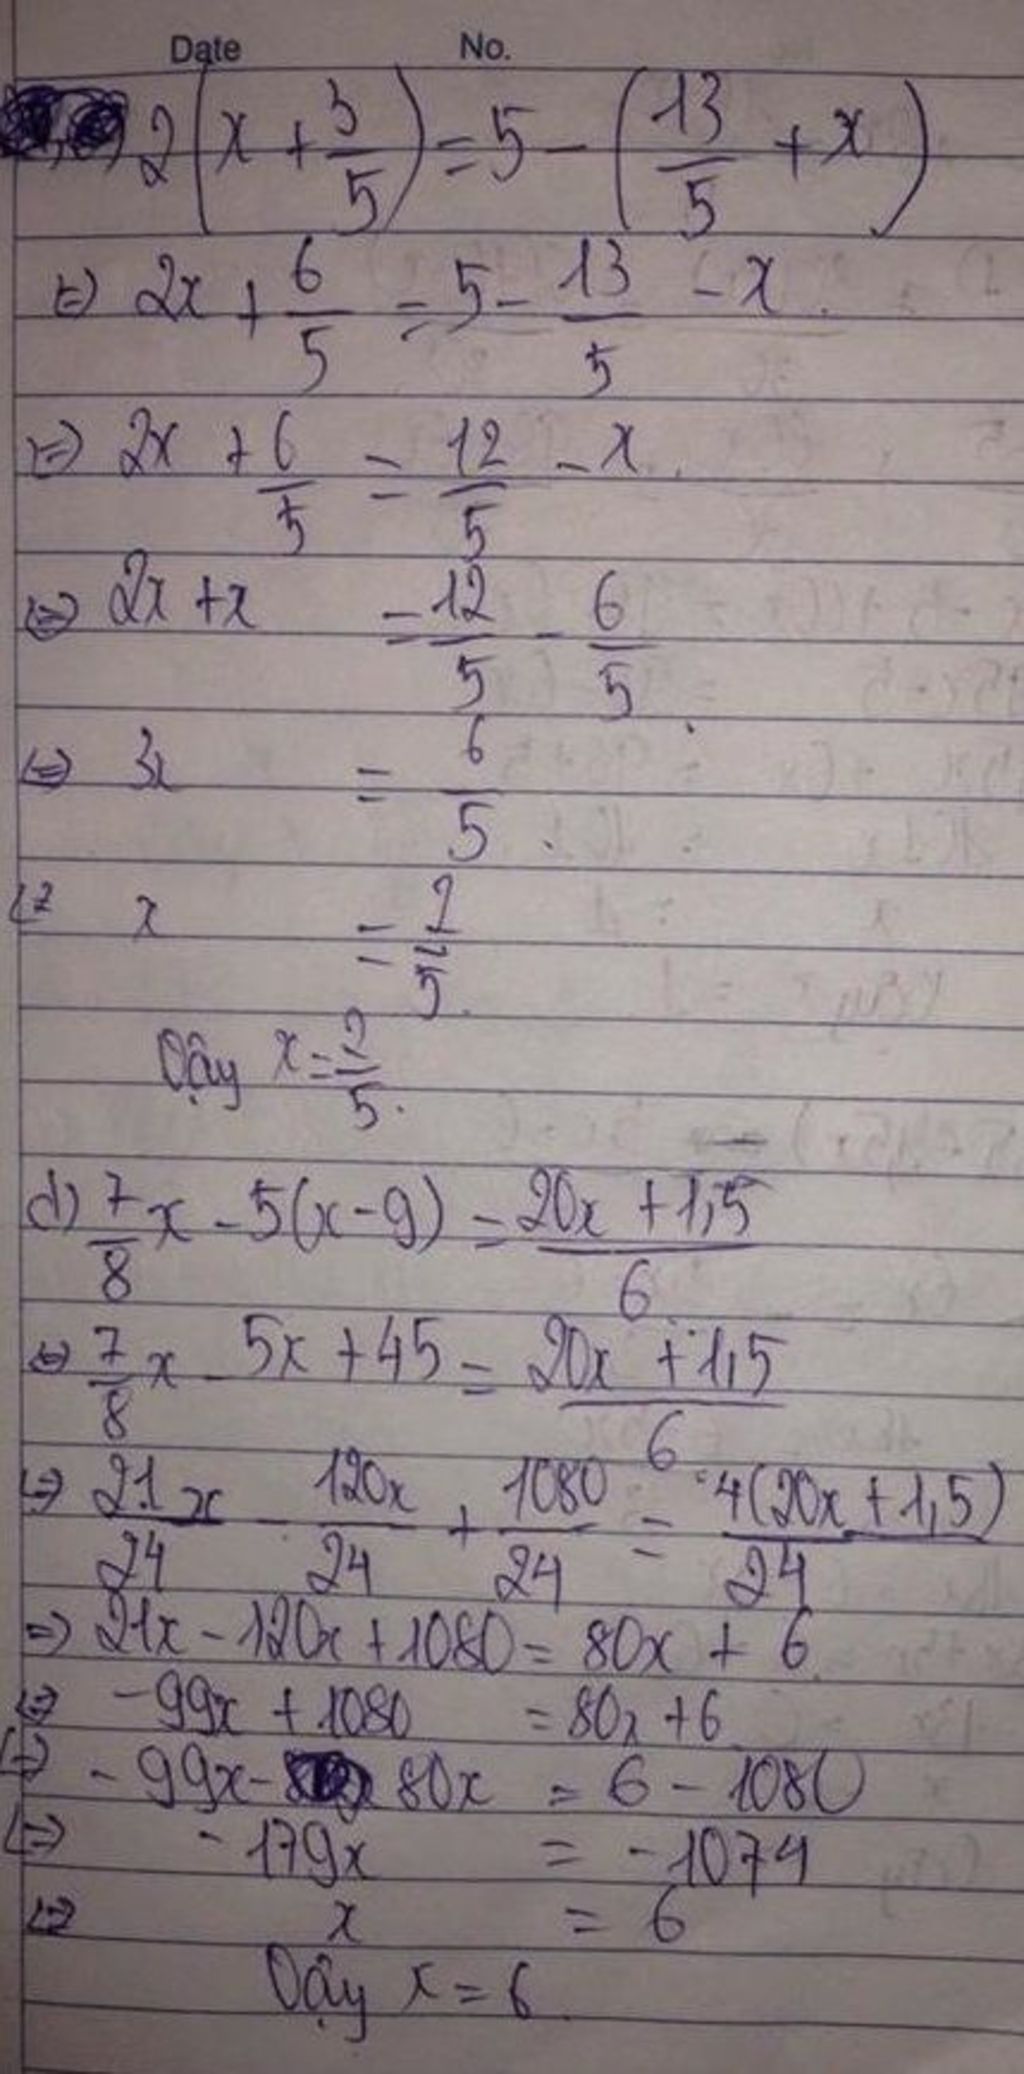 Date No.
2(x + 3/5) = 5 - (13/5 + x)
⇔ 2x + 6/5 = 5 - 13/5 - x
⇔ 2x + 6/5 = 12/5 - x
⇔ 2x + x = 12/5 - 6/5
⇔ 3x = 6/5
⇔ x = 2/5
Vậy x = 2/5.
d) 7/8 x - 5(x - 9) = (20x + 1,5)/6
⇔ 7/8 x - 5x + 45 = (20x + 1,5)/6
⇔ 21x/24 - 120x/24 + 1080/24 = 4(20x + 1,5)/24
⇒ 21x - 120x + 1080 = 80x + 6
⇔ -99x + 1080 = 80x + 6
⇔ -99x - 80x = 6 - 1080
⇔ -179x = -1074
⇔ x = 6
Vậy x = 6